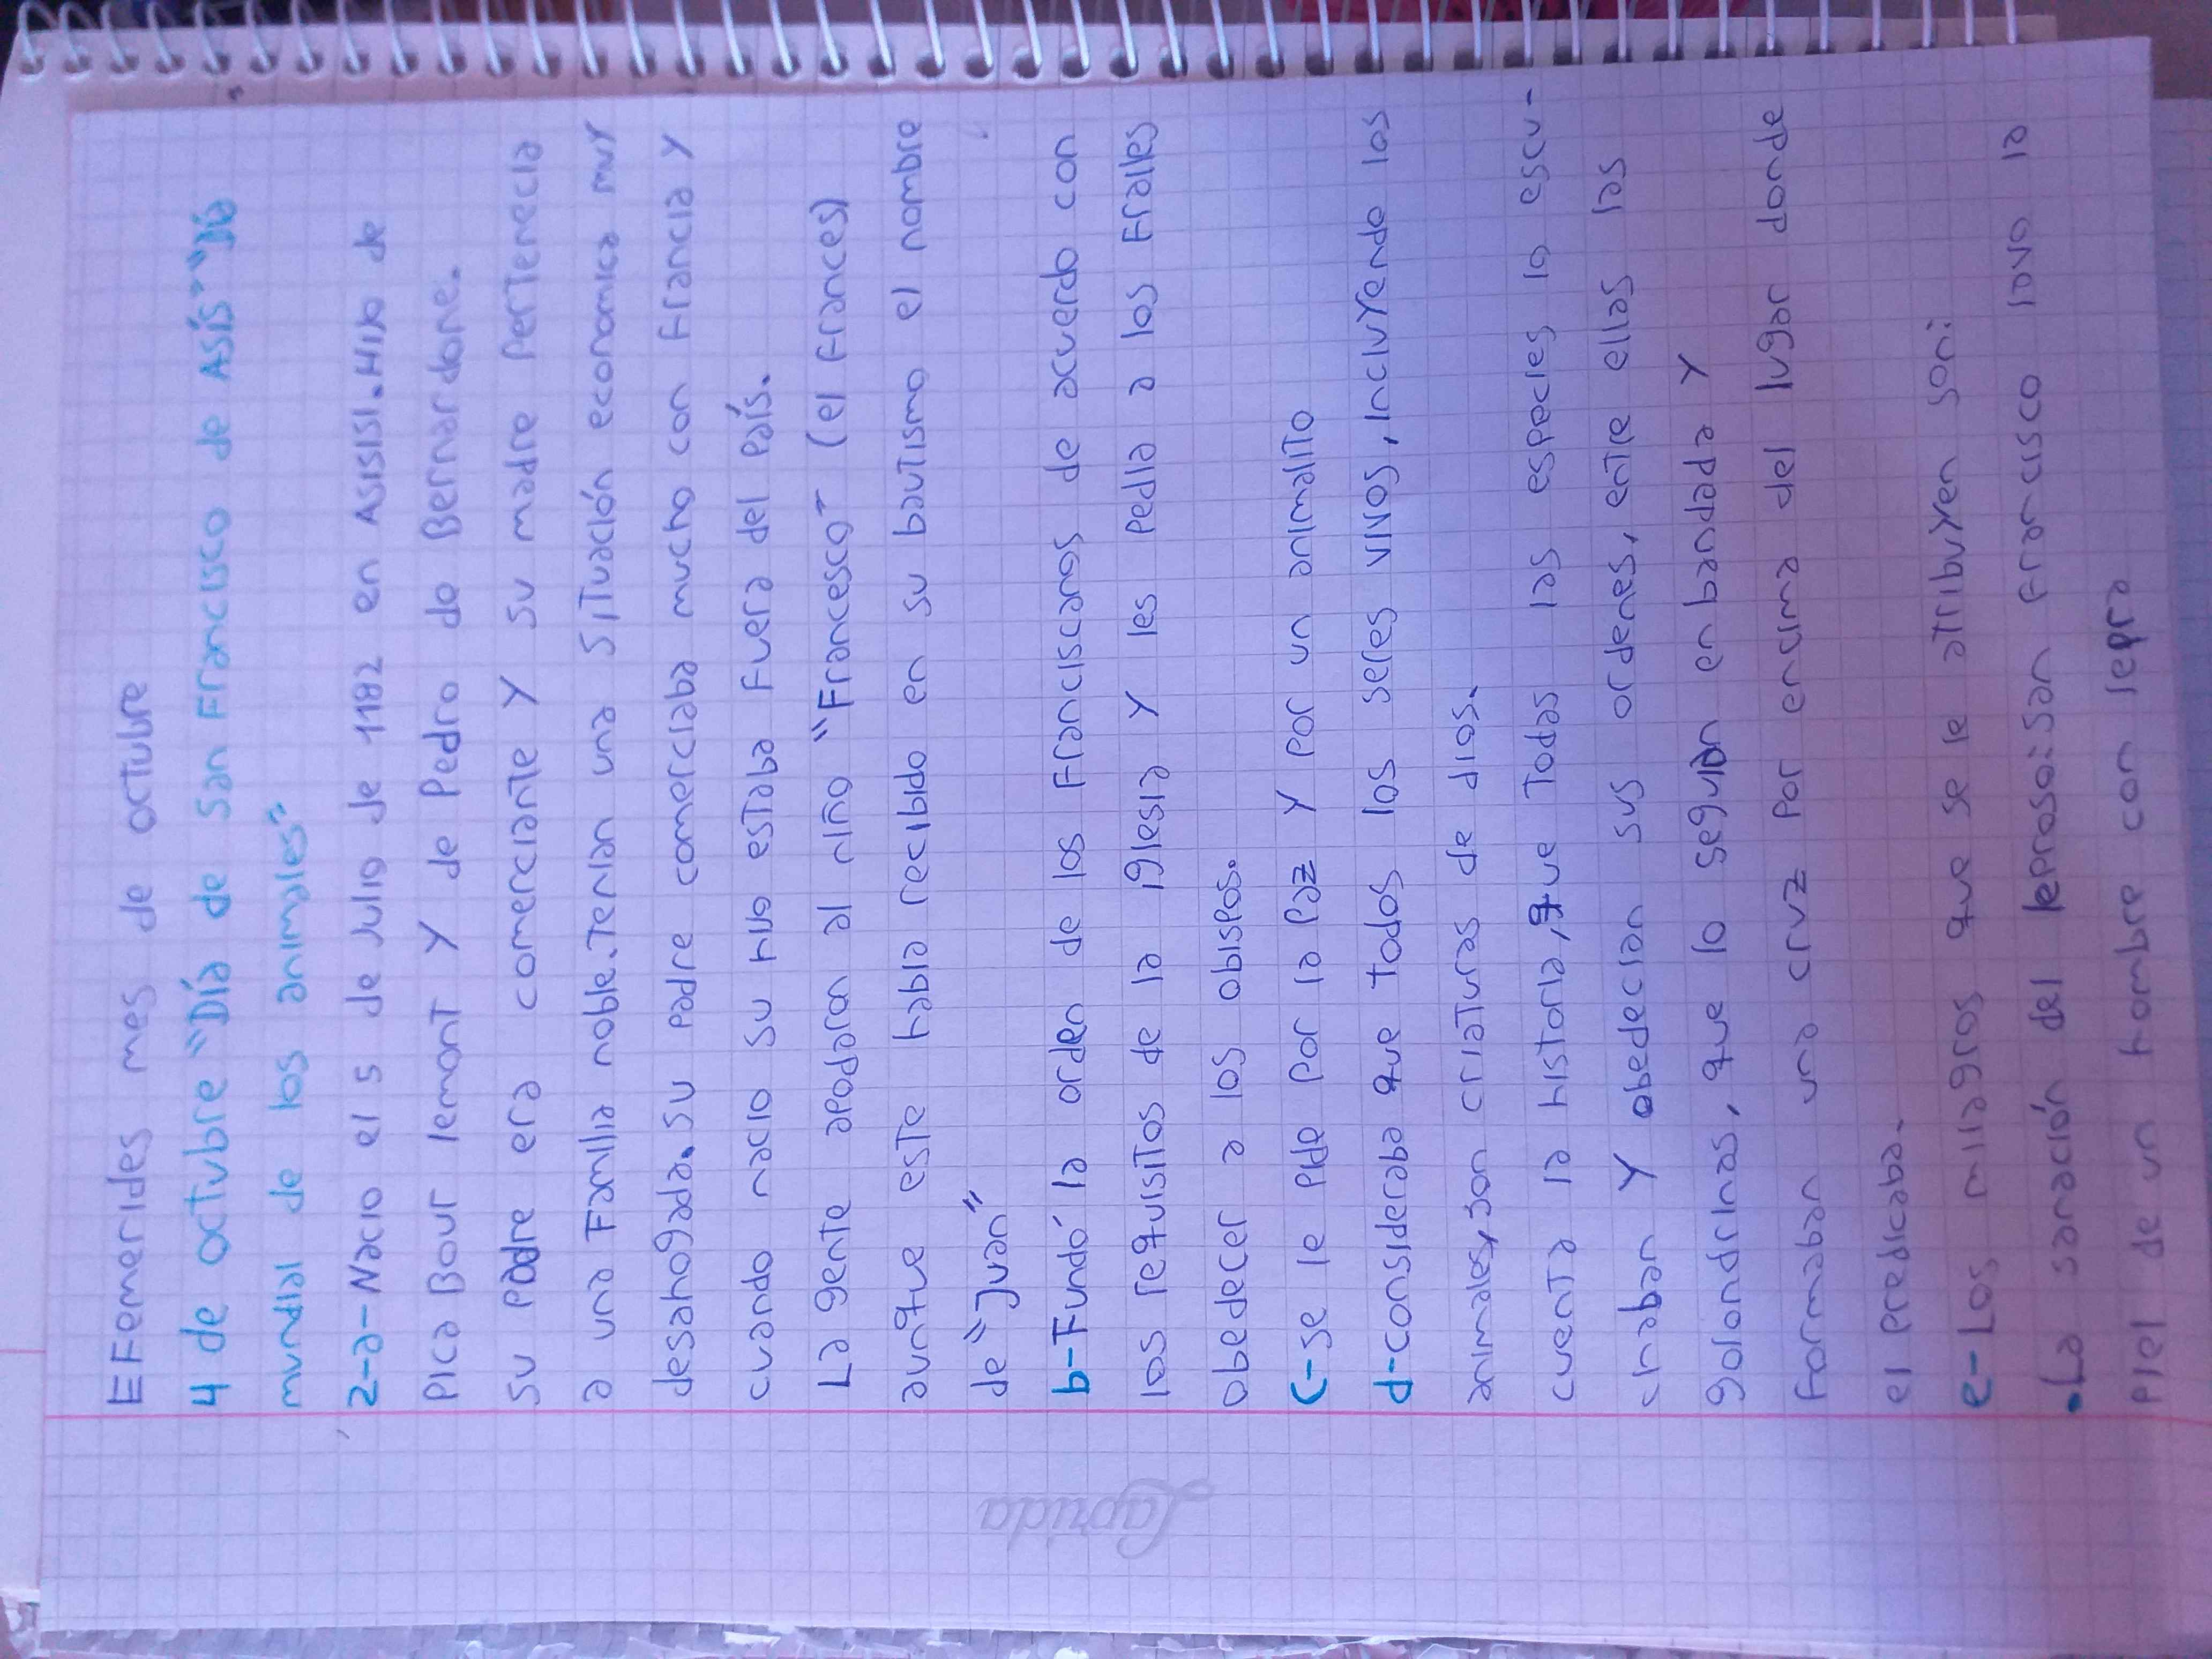 EFemerides mes de octubre
4 de octubre "Día de san Francisco de Asís" "Día
mundial de los animales"
2-a-Nacio el 5 de Julio de 1182 en Asisisi. Hijo de
Pica Bour lemont y de Pedro de Bernardone.
su padre era comerciante y su madre pertenecia
a una Familia noble. Tenian una situación economica muy
desahogada. su padre comerciaba mucho con Francia y
cuando nacio su hijo estaba Fuera del país.
La gente apodaron al niño "Francesco" (el Frances)
aunque este habia recibido en su bautismo el nombre
de "Juan"
b-Fundó la orden de los Franciscanos de acuerdo con
los requisitos de la iglesia y les pedia a los Frailes
obedecer a los obispos.
c-se le pide por la paz y por un animalito
d-consideraba que todos los seres vivos, incluyendo los
animales, son criaturas de dios.
cuenta la historia, que todas las especies lo escu-
chaban y obedecian sus ordenes, entre ellas las
golondrinas, que lo seguian en bandada y
Formaban una cruz por encima del lugar donde
el predicaba.
e-Los milagros que se le atribuyen son:
•La sanación del leproso: san Francisco lavo la
piel de un hombre con lepra
Laprida